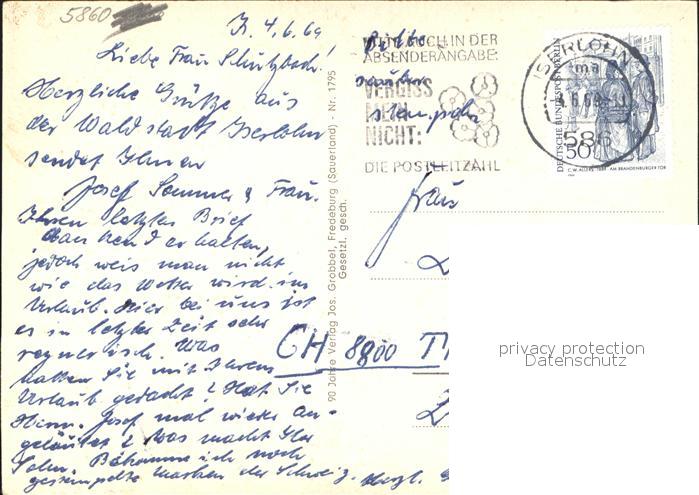 5860
J. 4.6.69
Liebe Frau Shutzbach!
Herzliche Grüße aus
der Waldstadt Iserlohn
sendet Ihnen
Josef Sommer & Frau.
Ihren letzten Brief
dankend erhalten,
jedoch weis man nicht
wie das Wetter wird im
Urlaub. Hier bei uns ist
es in letzter Zeit sehr
regnerisch. Was
hatten Sie mit Ihrem
Urlaub gedacht? Hat Sie
Herrn. Josef mal wieder an-
geläutet? Was macht Ihr
Sohn. Bekomme ich noch
gestempelte Marken der Schweiz. Herzl.
Bitte
stempeln
BITTE AUCH IN DER
ABSENDERANGABE:
VERGISS
MEIN
NICHT:
DIE POSTLEITZAHL
ISERLOHN
586
DEUTSCHE BUNDESPOST BERLIN
50
C.W. ALLERS 1889 AM BRANDENBURGER TOR
90 Jahre Verlag Jos. Grobbel, Fredeburg (Sauerland) - Nr. 1795
Gesetzl. gesch.
Frau
CH 8800
privacy protection
Datenschutz